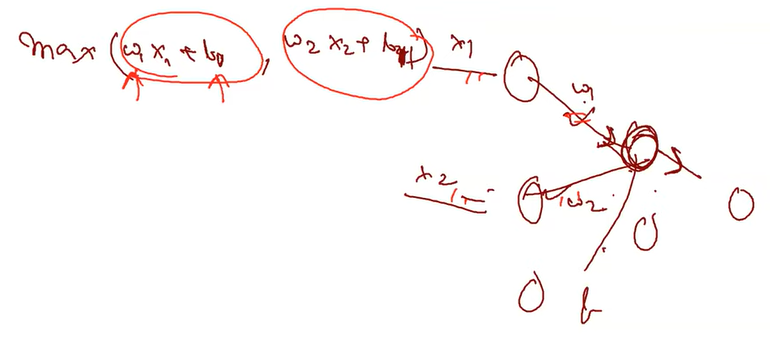 max (w₁ x₁ + b₁, w₂ x₂ + b₂)
x₁
w₁
x₂
w₂
b